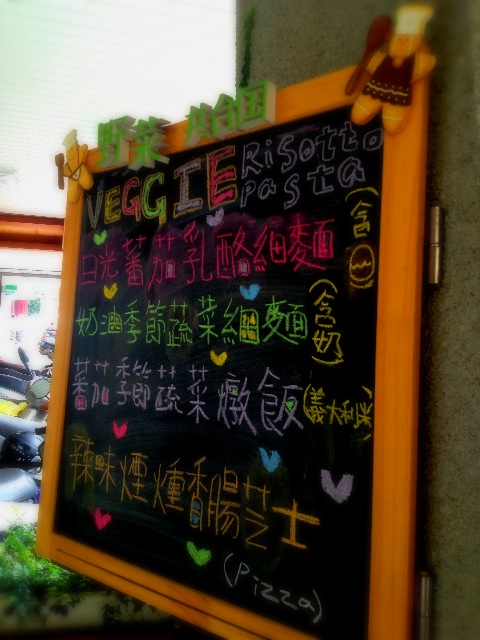 野菜 共合国
VEGGIE Risotto
Pasta
日光蕃茄乳酪細麵(含
奶油季節蔬菜細麵(含奶)
蕃茄季節蔬菜燉飯(義大利米)
辣味煙燻香腸芝士
(pizza)